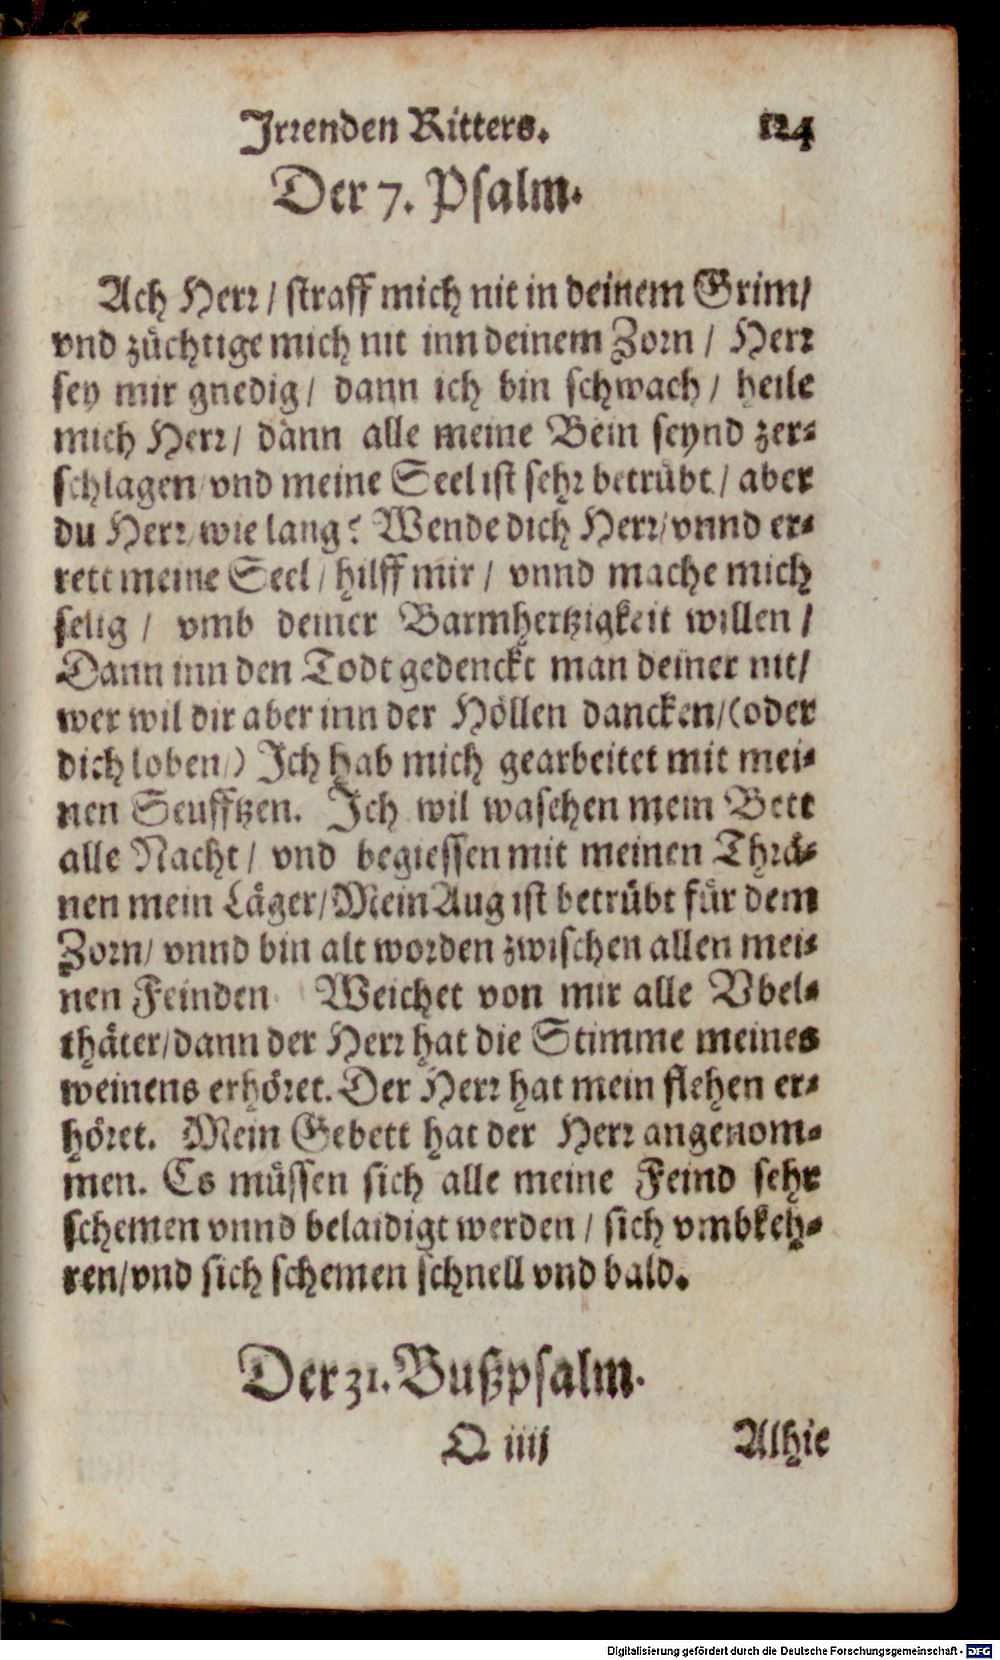 Irrenden Ritters. 124
Der 7. Psalm.
Ach Herr / straff mich nit in deinem Grim/
vnd züchtige mich nit inn deinem Zorn / Herr
sey mir gnedig / dann ich bin schwach / heile
mich Herr / dann alle meine Bein seynd zer-
schlagen/vnd meine Seel ist sehr betrübt / aber
du Herr/wie lang? Wende dich Herr/vnnd er-
rett meine Seel / hilff mir / vnnd mache mich
selig / vmb deiner Barmhertzigkeit willen /
Dann inn den Todt gedenckt man deiner nit/
wer wil dir aber inn der Höllen dancken/(oder
dich loben/) Ich hab mich gearbeitet mit mei-
nen Seufftzen. Ich wil waschen mein Bett
alle Nacht / vnd begiessen mit meinen Thrä-
nen mein Läger/Mein Aug ist betrübt für dem
Zorn/ vnnd bin alt worden zwischen allen mei-
nen Feinden Weichet von mir alle Vbel-
thäter/dann der Herr hat die Stimme meines
weinens erhöret. Der Herr hat mein flehen er-
höret. Mein Gebett hat der Herr angenom-
men. Es müssen sich alle meine Feind sehr
schemen vnnd belaidigt werden / sich vmbkeh-
ren/vnd sich schemen schnell vnd bald.
Der 31. Bußpsalm.
Q iiij Alhie
Digitalisierung gefördert durch die Deutsche Forschungsgemeinschaft - DFG